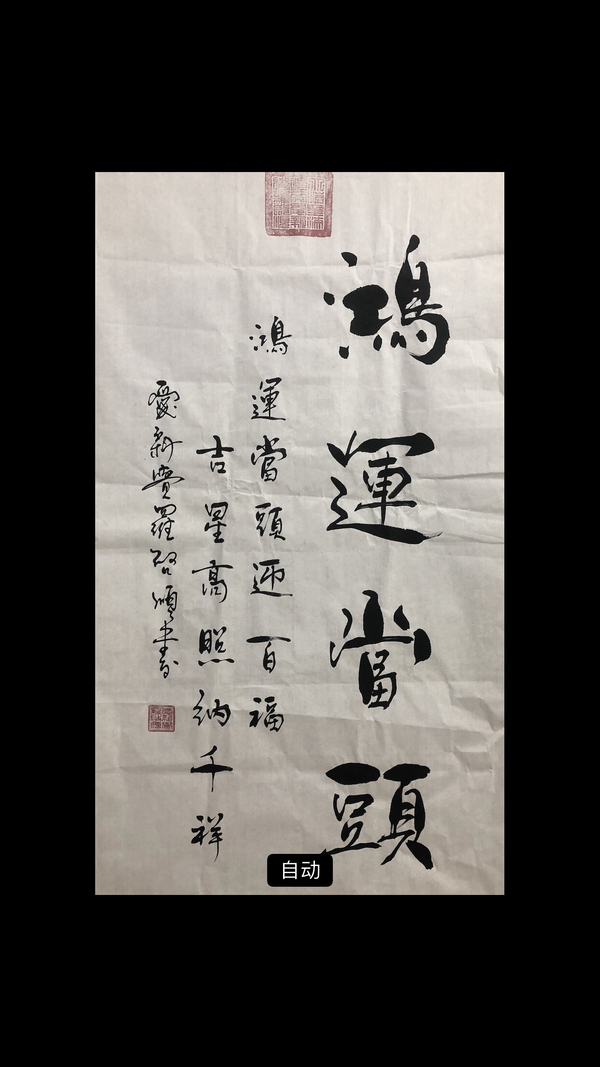 鴻運當頭
鴻運當頭迎百福
吉星高照納千祥
愛新覺羅啓順書
自动